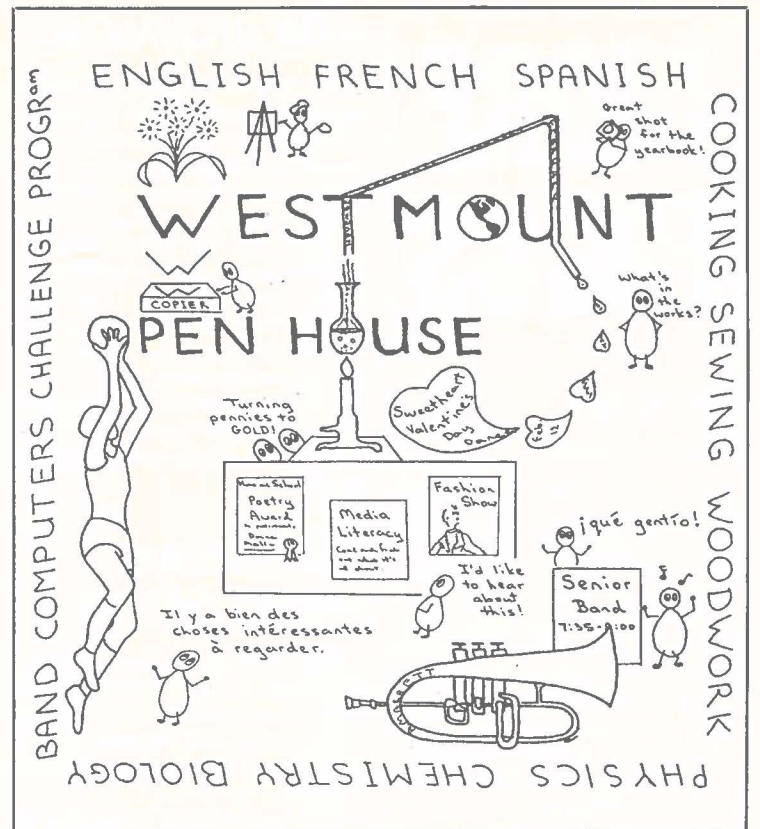 ENGLISH FRENCH SPANISH
COOKING SEWING WOODWORK
PHYSICS CHEMISTRY BIOLOGY
BAND COMPUTERS CHALLENGE PROGRam
Great
shot
for the
yearbook!
WESTMOUNT
W
COPIER
What's
in
the
works?
PEN HOUSE
Turning
pennies to
GOLD!
Sweetheart
Valentine's
Day
Dance
Feb
12
School
Poetry
Award
Media
Literacy
Fashion
Show
¡qué gentío!
I'd like
to hear
about
this!
Senior
Band
7:35-9:00
Il y a bien des
choses intéressantes
à regarder.